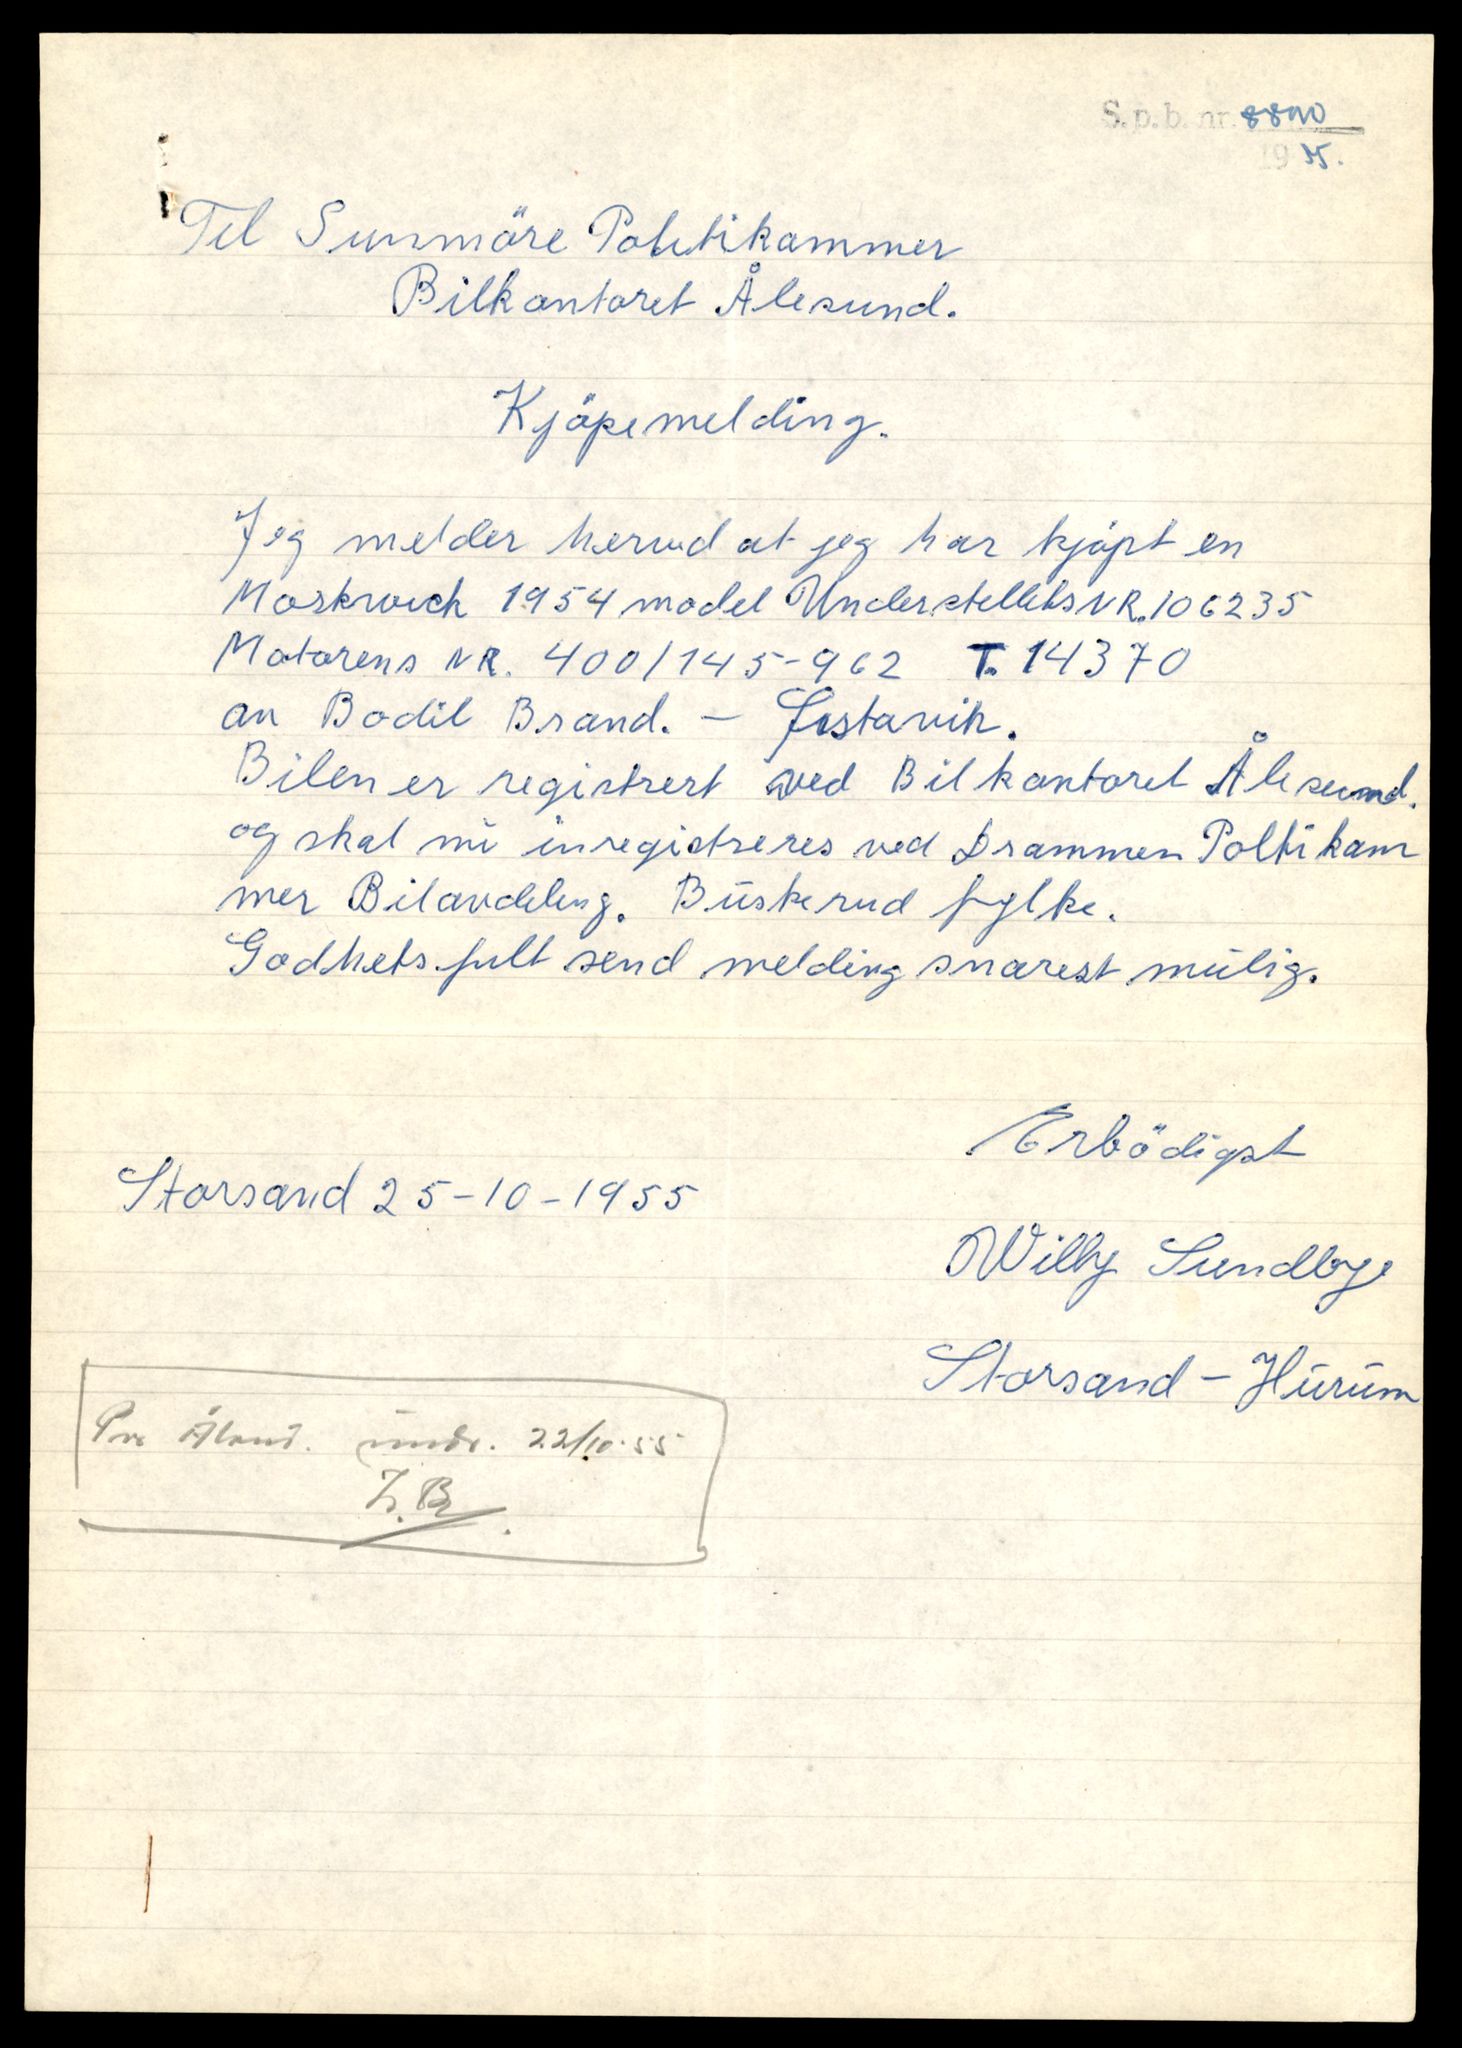 S.p.b. nr. 8800
1955.
Til Sunmöre Politikammer
Bilkontoret Ålesund.
Kjöpemelding.
Jeg melder herved at jeg har kjöpt en
Moskwich 1954 model Understellets NR. 106235
Motorens NR. 400/145-962 T. 14370
av Bodil Brand. –
Bilen er registrert ved Bilkontoret Ålesund.
og skal nü inregistreres ved Drammen Politikam
mer Bilavdeling. Büskerud fylke.
Godhetsfult send melding snarest mülig.
Erbödigst
Storsand 25-10-1955
Willy Sundbye
Storsand – Hürüm
undr. 22/10-55